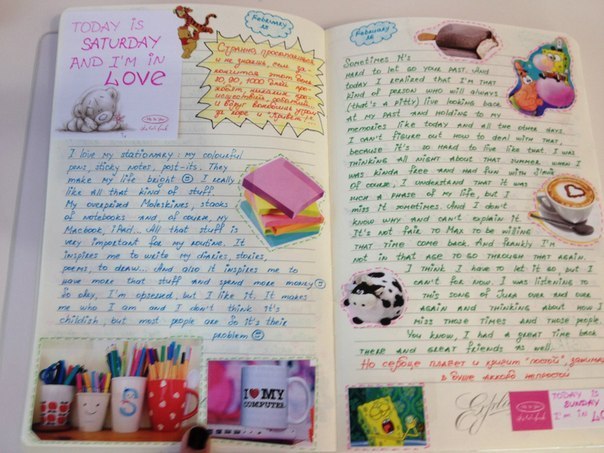 TODAY IS
SATURDAY
AND I'M IN
LOVE
February
Странно, просыпаешься
и не знаешь, чем за-
кончится этот день
10, 90, 1000 дней про-
и вдруг
I love my stationary: my colourful
pens, sticky notes, post-its. They
make my life bright I really
like all that kind of stuff.
My overprized Moleskines, stacks
of notebooks and, of course, my
Macbook, iPad... All that stuff is
very important for my routine. It
inspires me to write my diaries, stories,
poems, to draw... And also it inspires me to
have more that stuff and spend more money
So okay, I'm obsessed, but I like it. It makes
me who I am and I don't think it's
childish, but most people are so it's their
problem
I MY
COMPUTER
February
Sometimes it's
hard to let go your past. And
today I realized that I'm that
kind of person who will always
(that's a pitty) live looking back
at my past and holding to my
memories like today and all the other days.
I can't figure out how to deal with that,
because it's so hard to live like that. I was
thinking all night about that summer when I
was kinda free and had fun with
Of course, I understand that it was
such a phase of my life, but I
miss it sometimes. And I don't
know why and can't explain it.
It's not fair to Max to be willing
that time come back. And frankly I'm
not in that age to go through that again.
I think I have to let it go, but I
can't for now. I was listening to
this song of Jura over and over
again and thinking about how I
miss those times and those people.
You know, I had a great time back
there and great friends as well...
Но сердце плавет и кричит "постой",
в душе
TODAY IS
SUNDAY
I'm in LO